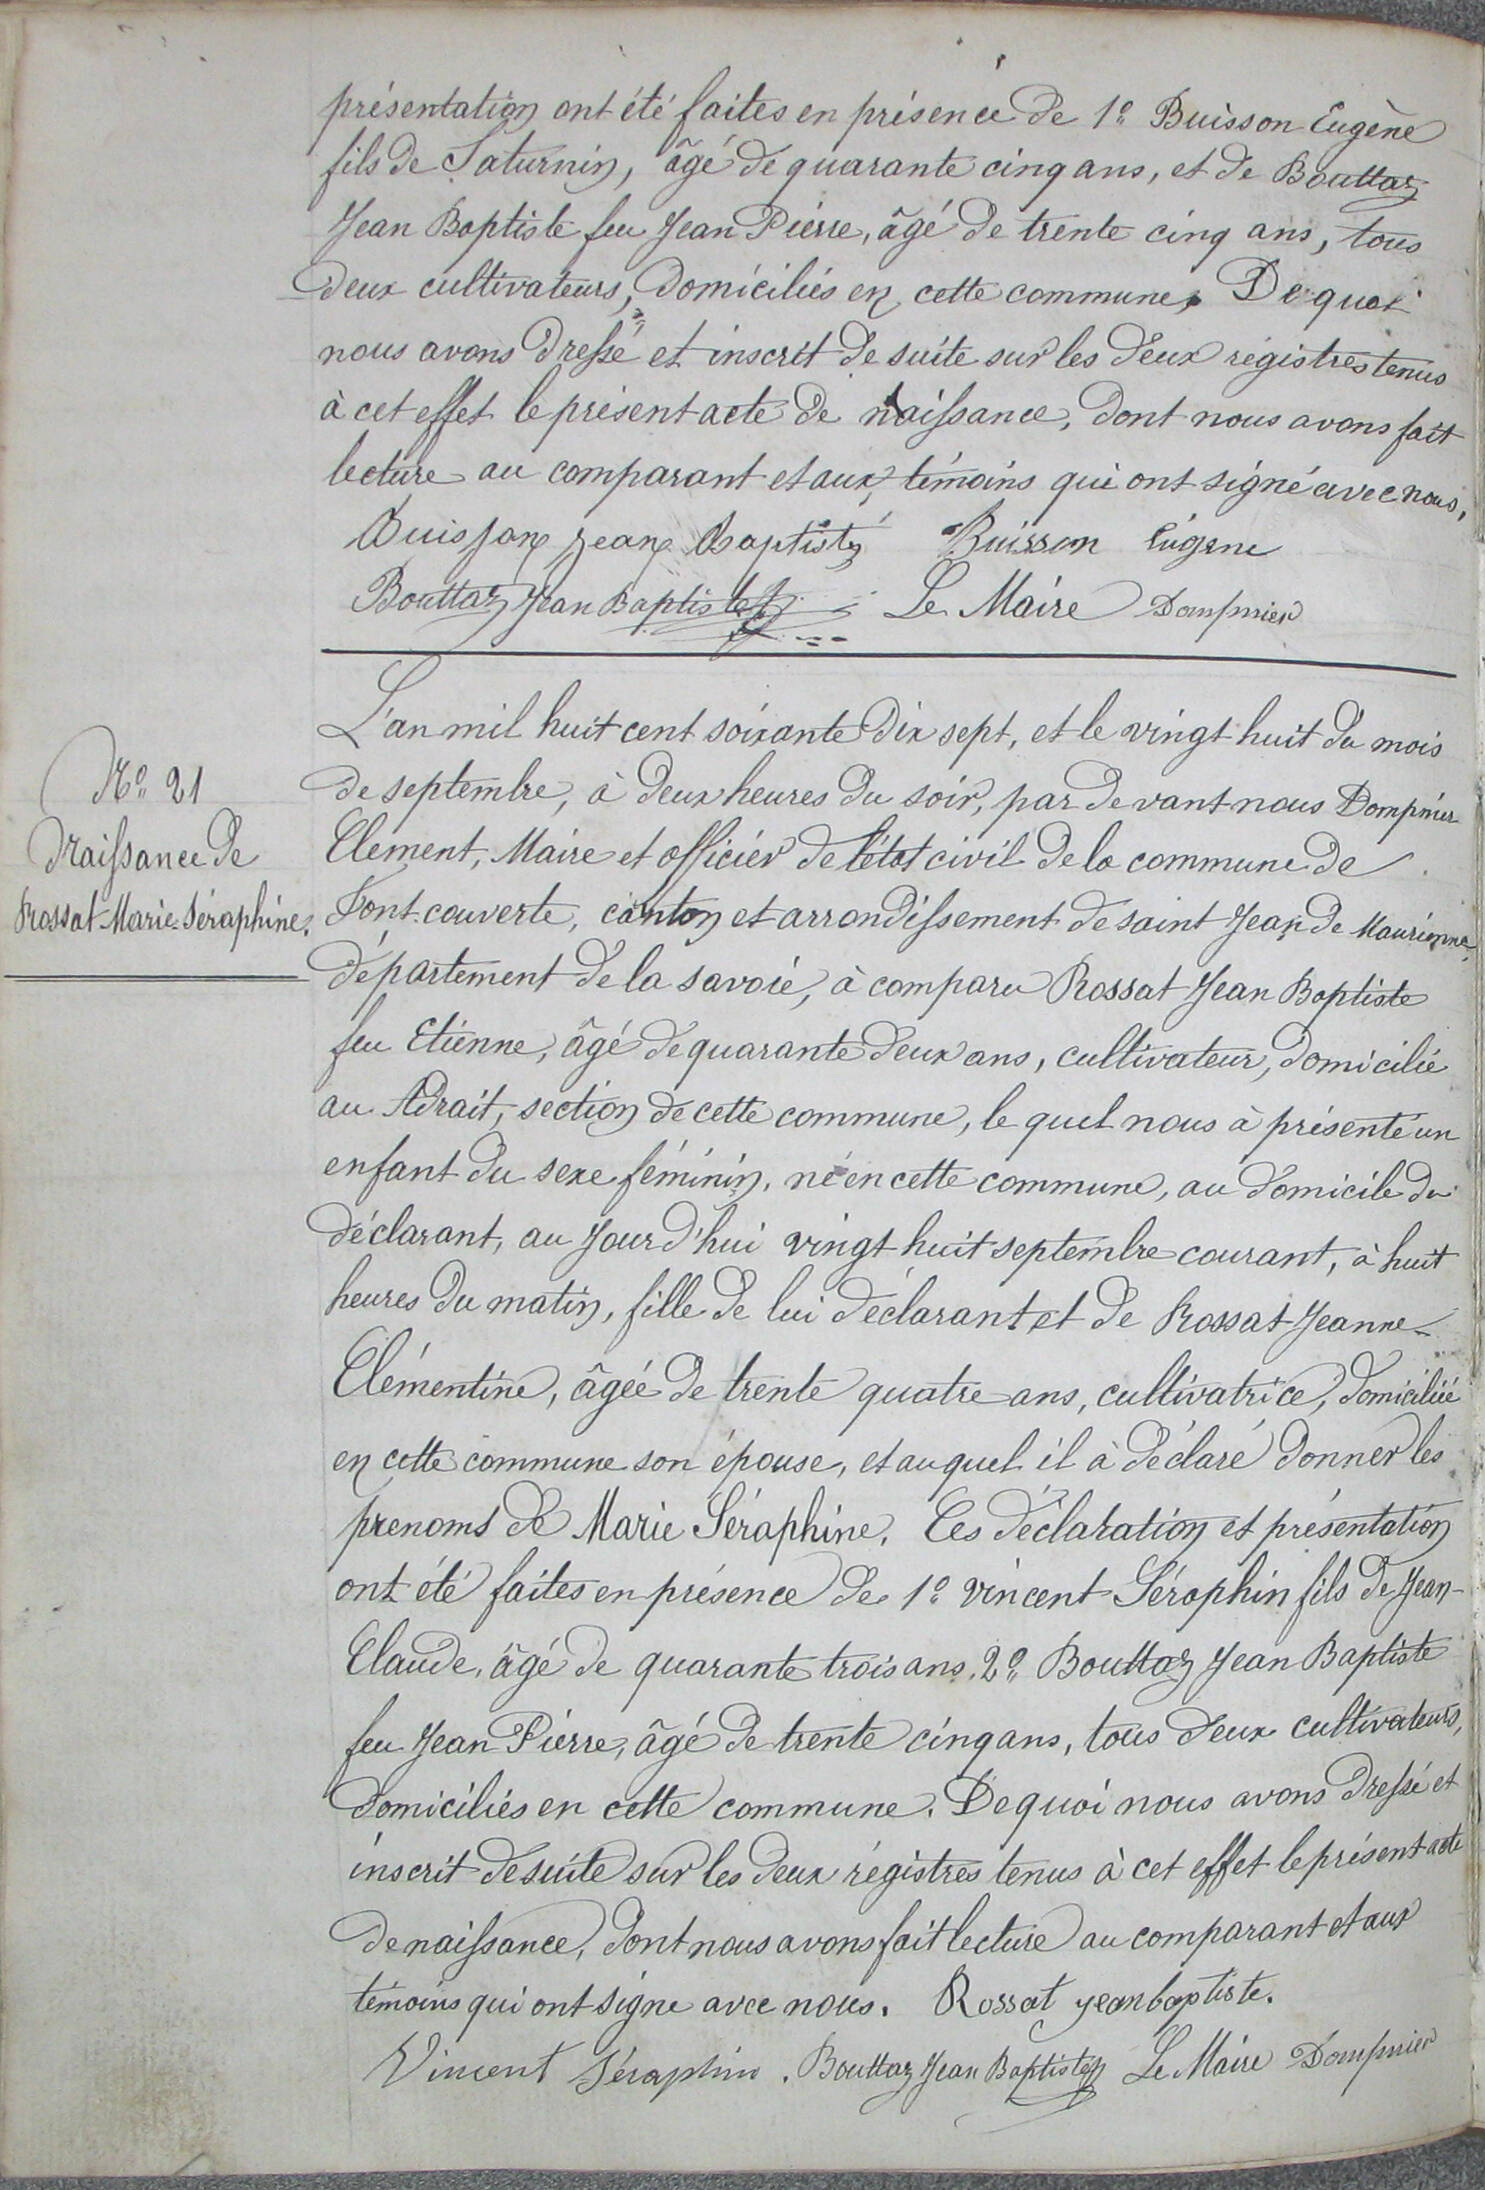 présentation ont été faites en présence de 1° Buisson Eugène
fils de Saturnin, âgé de quarante cinq ans, et de Bouttaz
Jean Baptiste feu Jean Pierre, âgé de trente cinq ans, tous
deux cultivateurs, domiciliés en cette commune, De quoi
nous avons dressé et inscrit de suite sur les deux régistres tenus
à cet effet le présent acte de naissance, dont nous avons fait
lecture au comparant et aux témoins qui ont signé avec nous.
Buisson Jean Baptiste Buisson Eugène
Bouttaz Jean Baptiste Le Maire Dompnier
N° 21
Naissance de
Rossat Marie-Séraphine.
L'an mil huit cent soixante dix sept, et le vingt huit du mois
de septembre, à deux heures du soir, par devant nous Dompnier
Clément, Maire et officier de l'état civil de la commune de
Font-couverte, canton et arrondissement de saint Jean de Maurienne,
département de la savoie, à comparu Rossat Jean Baptiste
feu Etienne, âgé de quarante deux ans, cultivateur, domicilié
au Adrait, section de cette commune, le quel nous à présenté un
enfant du sexe féminin, né en cette commune, au domicile du
déclarant, au Jourd'hui vingt huit septembre courant, à huit
heures du matin, fille de lui déclarant et de Rossat Jeanne-
Clémentine, âgée de trente quatre ans, cultivatrice, domiciliée
en cette commune son épouse, et auquel il à déclaré donner les
prenoms de Marie Séraphine. Ces déclaration et présentation
ont été faites en présence de 1° vincent Séraphin fils de Jean-
Claude, âgé de quarante trois ans. 2° Bouttaz Jean Baptiste
feu Jean Pierre, âgé de trente cinq ans, tous deux cultivateurs,
domiciliés en cette commune. De quoi nous avons dressé et
inscrit de suite sur les deux régistres tenus à cet effet le présent acte
de naissance, dont nous avons fait lecture au comparant et aux
témoins qui ont signe avec nous. Rossat jean baptiste.
Vincent Séraphin. Bouttaz Jean Baptiste Le Maire Dompnier